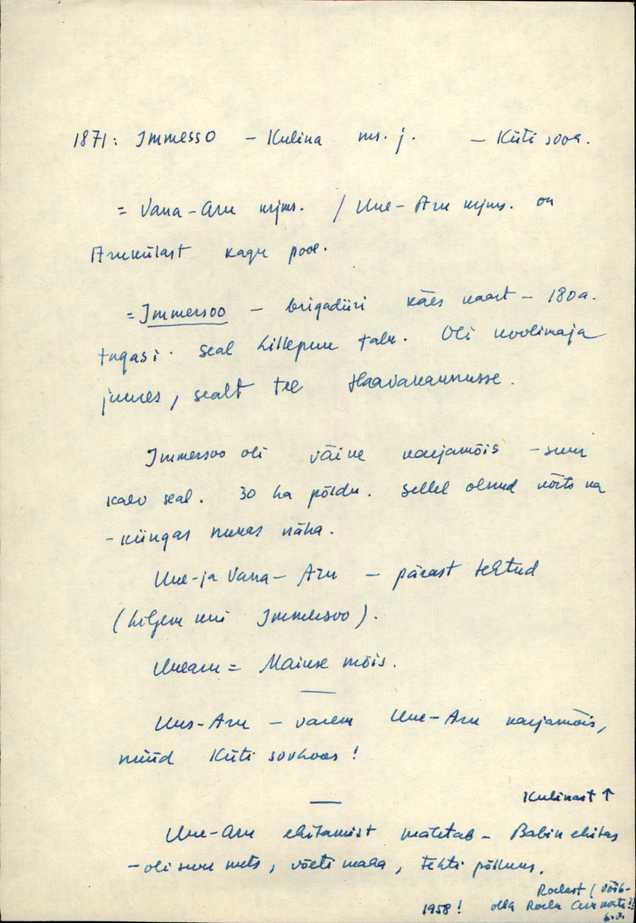 1871: Immesso – Kulina ms. j. – Küti sooa.
= Vana-Aru kjms. / Uue-Aru kjms. on
Arukülast kagu pool.
= Immersoo – brigadiiri käes kaart – 180a.
tagasi. Seal Lillepuu talu. Oli koolimaja
juures, sealt tee Haavakannusse.
Immersoo oli väike karjamõis – suur
kaev seal. 30 ha põldu. Sellel olnud kõrts ka
– küngas nurgas näha.
Uue- ja Vana-Aru – pärast tehtud
(hiljem kui Immersoo).
Uuearu = Mainse mõis.
Uus-Aru – varem Uue-Aru karjamõis,
nüüd Küti sovhoos!
Kulinast ↑
Uue-Aru ehitamist mäletab – Babin ehitas
– oli suur mets, võeti maha, tehti põlluks.
Roelast (võib-
1958! olla Roela